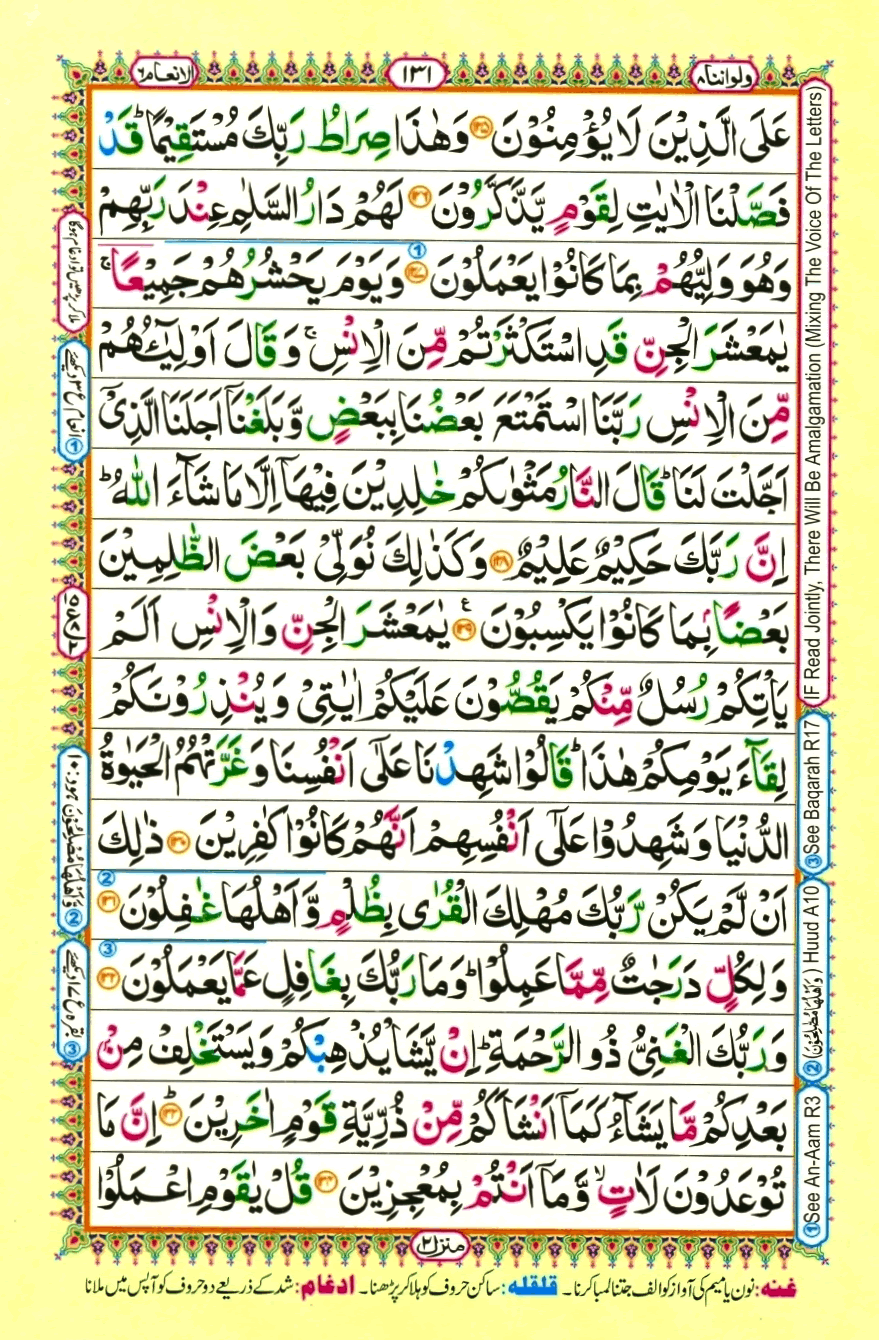 ولواننا ٨
١٣١
الانعام ٦
عَلَى الَّذِيْنَ لَا يُؤْمِنُوْنَ ۝١٢٥ وَهٰذَا صِرَاطُ رَبِّكَ مُسْتَقِيْمًا ؕ قَدْ
فَصَّلْنَا الْاٰيٰتِ لِقَوْمٍ يَّذَّكَّرُوْنَ ۝١٢٦ لَهُمْ دَارُ السَّلٰمِ عِنْدَ رَبِّهِمْ
وَهُوَ وَلِيُّهُمْ بِمَا كَانُوْا يَعْمَلُوْنَ ۝١٢٧ وَيَوْمَ يَحْشُرُهُمْ جَمِيْعًا ۚ
يٰمَعْشَرَ الْجِنِّ قَدِ اسْتَكْثَرْتُمْ مِّنَ الْاِنْسِ ۚ وَقَالَ اَوْلِيٰٓـُٔهُمْ
مِّنَ الْاِنْسِ رَبَّنَا اسْتَمْتَعَ بَعْضُنَا بِبَعْضٍ وَّبَلَغْنَاۤ اَجَلَنَا الَّذِيْۤ
اَجَّلْتَ لَنَا ؕ قَالَ النَّارُ مَثْوٰىكُمْ خٰلِدِيْنَ فِيْهَاۤ اِلَّا مَا شَآءَ اللّٰهُ ؕ
اِنَّ رَبَّكَ حَكِيْمٌ عَلِيْمٌ ۝١٢٨ وَكَذٰلِكَ نُوَلِّيْ بَعْضَ الظّٰلِمِيْنَ
بَعْضًۢا بِمَا كَانُوْا يَكْسِبُوْنَ ۝١٢٩ ع يٰمَعْشَرَ الْجِنِّ وَالْاِنْسِ اَلَمْ
يَاْتِكُمْ رُسُلٌ مِّنْكُمْ يَقُصُّوْنَ عَلَيْكُمْ اٰيٰتِيْ وَيُنْذِرُوْنَكُمْ
لِقَآءَ يَوْمِكُمْ هٰذَا ؕ قَالُوْا شَهِدْنَا عَلٰۤى اَنْفُسِنَا وَغَرَّتْهُمُ الْحَيٰوةُ
الدُّنْيَا وَشَهِدُوْا عَلٰۤى اَنْفُسِهِمْ اَنَّهُمْ كَانُوْا كٰفِرِيْنَ ۝١٣٠ ذٰلِكَ
اَنْ لَّمْ يَكُنْ رَّبُّكَ مُهْلِكَ الْقُرٰى بِظُلْمٍ وَّاَهْلُهَا غٰفِلُوْنَ ۝١٣١
وَلِكُلٍّ دَرَجٰتٌ مِّمَّا عَمِلُوْا ؕ وَمَا رَبُّكَ بِغَافِلٍ عَمَّا يَعْمَلُوْنَ ۝١٣٢
وَرَبُّكَ الْغَنِيُّ ذُو الرَّحْمَةِ ؕ اِنْ يَّشَاْ يُذْهِبْكُمْ وَيَسْتَخْلِفْ مِنْۢ
بَعْدِكُمْ مَّا يَشَآءُ كَمَاۤ اَنْشَاَكُمْ مِّنْ ذُرِّيَّةِ قَوْمٍ اٰخَرِيْنَ ؕ۝١٣٣ اِنَّ مَا
تُوْعَدُوْنَ لَاٰتٍ ۙ وَّمَاۤ اَنْتُمْ بِمُعْجِزِيْنَ ۝١٣٤ قُلْ يٰقَوْمِ اعْمَلُوْا
منزل ٢
غنه: نون یا میم کی آواز کو الف جتنا لمبا کرنا۔ قلقله: ساکن حروف کو ہلا کر پڑھنا۔ ادغام: شد کے ذریعے دو حروف کو آپس میں ملانا
IF Read Jointly, There Will Be Amalgamation (Mixing The Voice Of The Letters)
③ See Baqarah R17
② (وَاَهْلُهَا مُصْلِحُوْنَ) Huud A10
① See An-Aam R3
ملا کر پڑھیں تو ادغام ہوگا
① انعام ع ٣ دیکھئے
② وَاَهْلُهَا مُصْلِحُوْنَ هود: ١٠